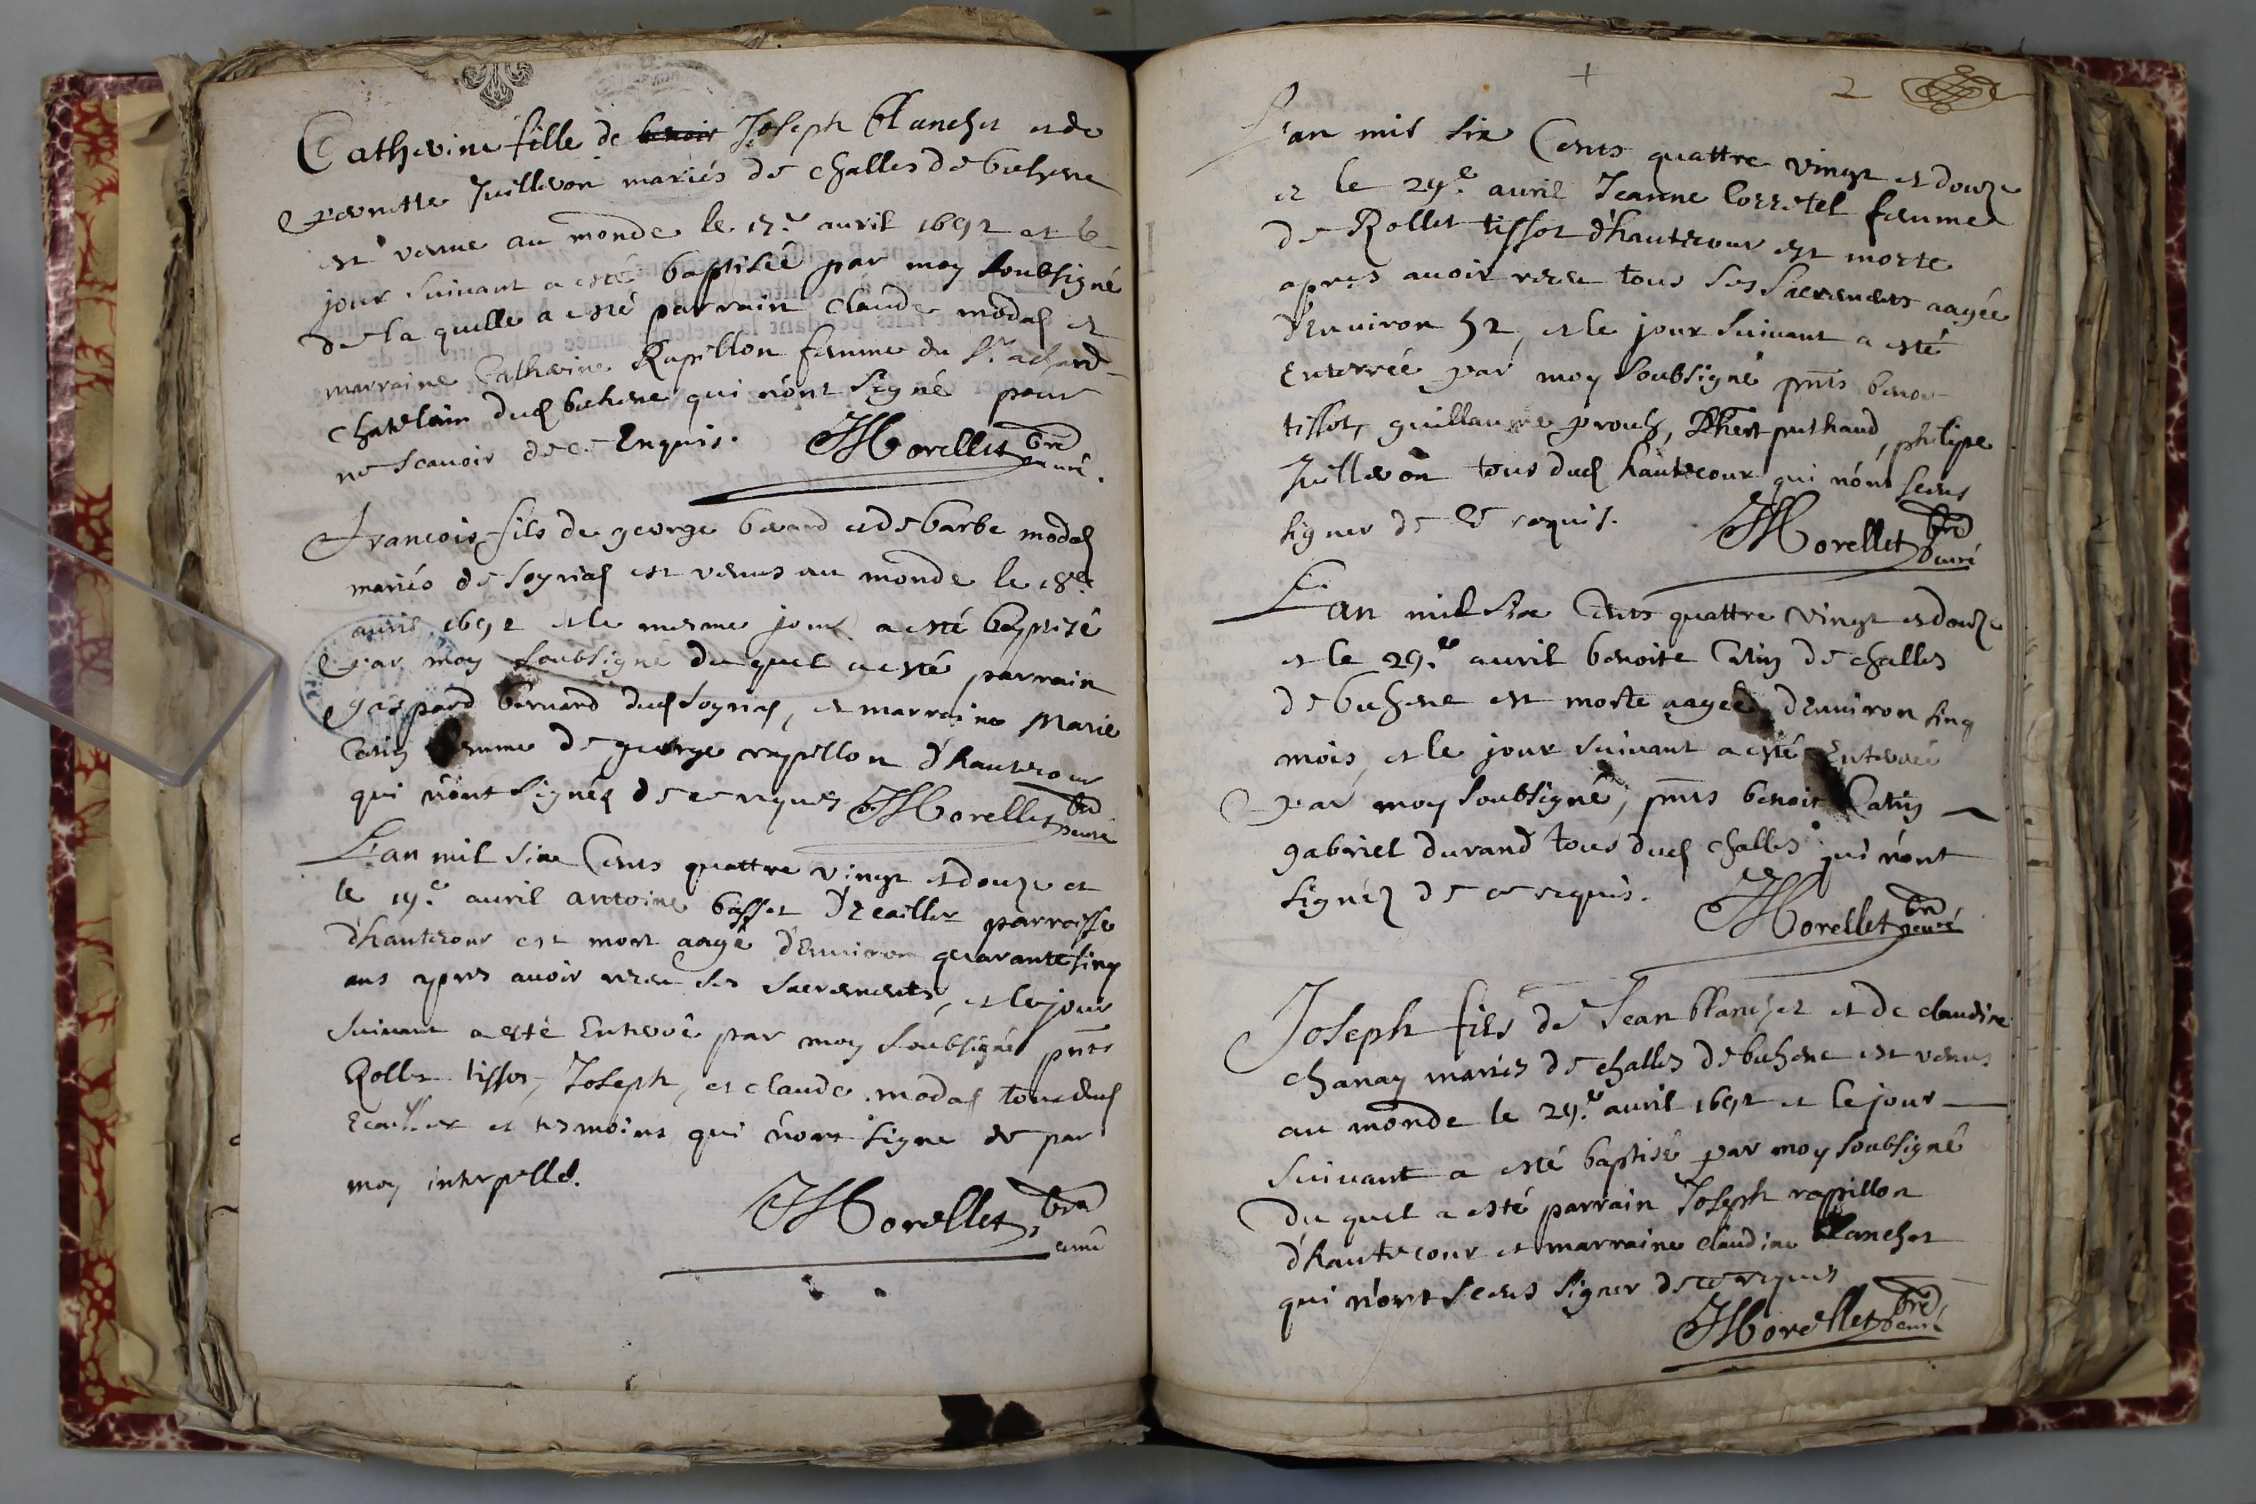 Catherine fille de benoit Joseph blanchet et de
pernette Juilleron mariés de challes de bohene
est venue au monde le 17e avril 1692 et le
jour suivant a esté baptisée par moy soubsigné
de la quelle a esté parrain Claude modas et
marraine Catherine Rapillon femme du Sr achard
chatelain dud bohene qui n'ont signé pour
ne scavoir de ce Enquis. JMorellet pre
curé.
francois fils de george berard et de barbe modas
mariés de soyrias est venus au monde le 18e
avril 1692 et le mesme jour a esté baptizé
par moy soubsigné du quel a esté parrain
gaspard bernard dud soyrias, et marraine Marie
Catin femme de george rapillon d'hautecour
qui n'ont signés de ce requis JMorellet pre
curé
L'an mil six Cents quattre vingt et douze et
le 19e avril antoine basset d'Ecailler parroisse
d'hautecour est mort aagé d'Environ quarante sinq
ans apres avoir receu ses sacrements, et le jour
suivant a esté Enterré par moy soubsigné pnts
Rollet tissot, Joseph, et claude modas tous dud
Ecailler et tesmoins qui n'ont signe de par
moy interpellé.
JMorellet pre
curé
2
L'an mil six Cents quattre vingt et douze
et le 29e avril Jeanne femme
de Rollet tissot d'hautecour est morte
apres avoir receu tous ses Sacrements aagée
d'Environ 52, et le jour suivant a esté
Enterrée par moy soubsigné pnts benoit
tissot, guillaume prouh, puthaud, philipe
Juilleron tous dud hautecour qui n'ont sceus
signer de ce requis. JMorellet pre
curé
L'an mil six Cents quattre vingt et douze
et le 29e avril benoite Catin de challes
de bohene est morte aagée d'Environ sinq
mois, et le jour suivant a esté Enterrée
par moy soubsigné, pnts benoit Catin
gabriel durand tous dud challes qui n'ont
signéz de ce requis. JMorellet pre
curé
Joseph fils de Jean blanchet et de claudine
chanay mariés de challes de bohene est venus
au monde le 29e avril 1692 et le jour
suivant a esté baptisé par moy soubsigné
du quel a esté parrain Joseph rapillon
d'hautecour et marraine claudine blanchet
qui n'ont sceus signer de ce requis
JMorellet pre
curé